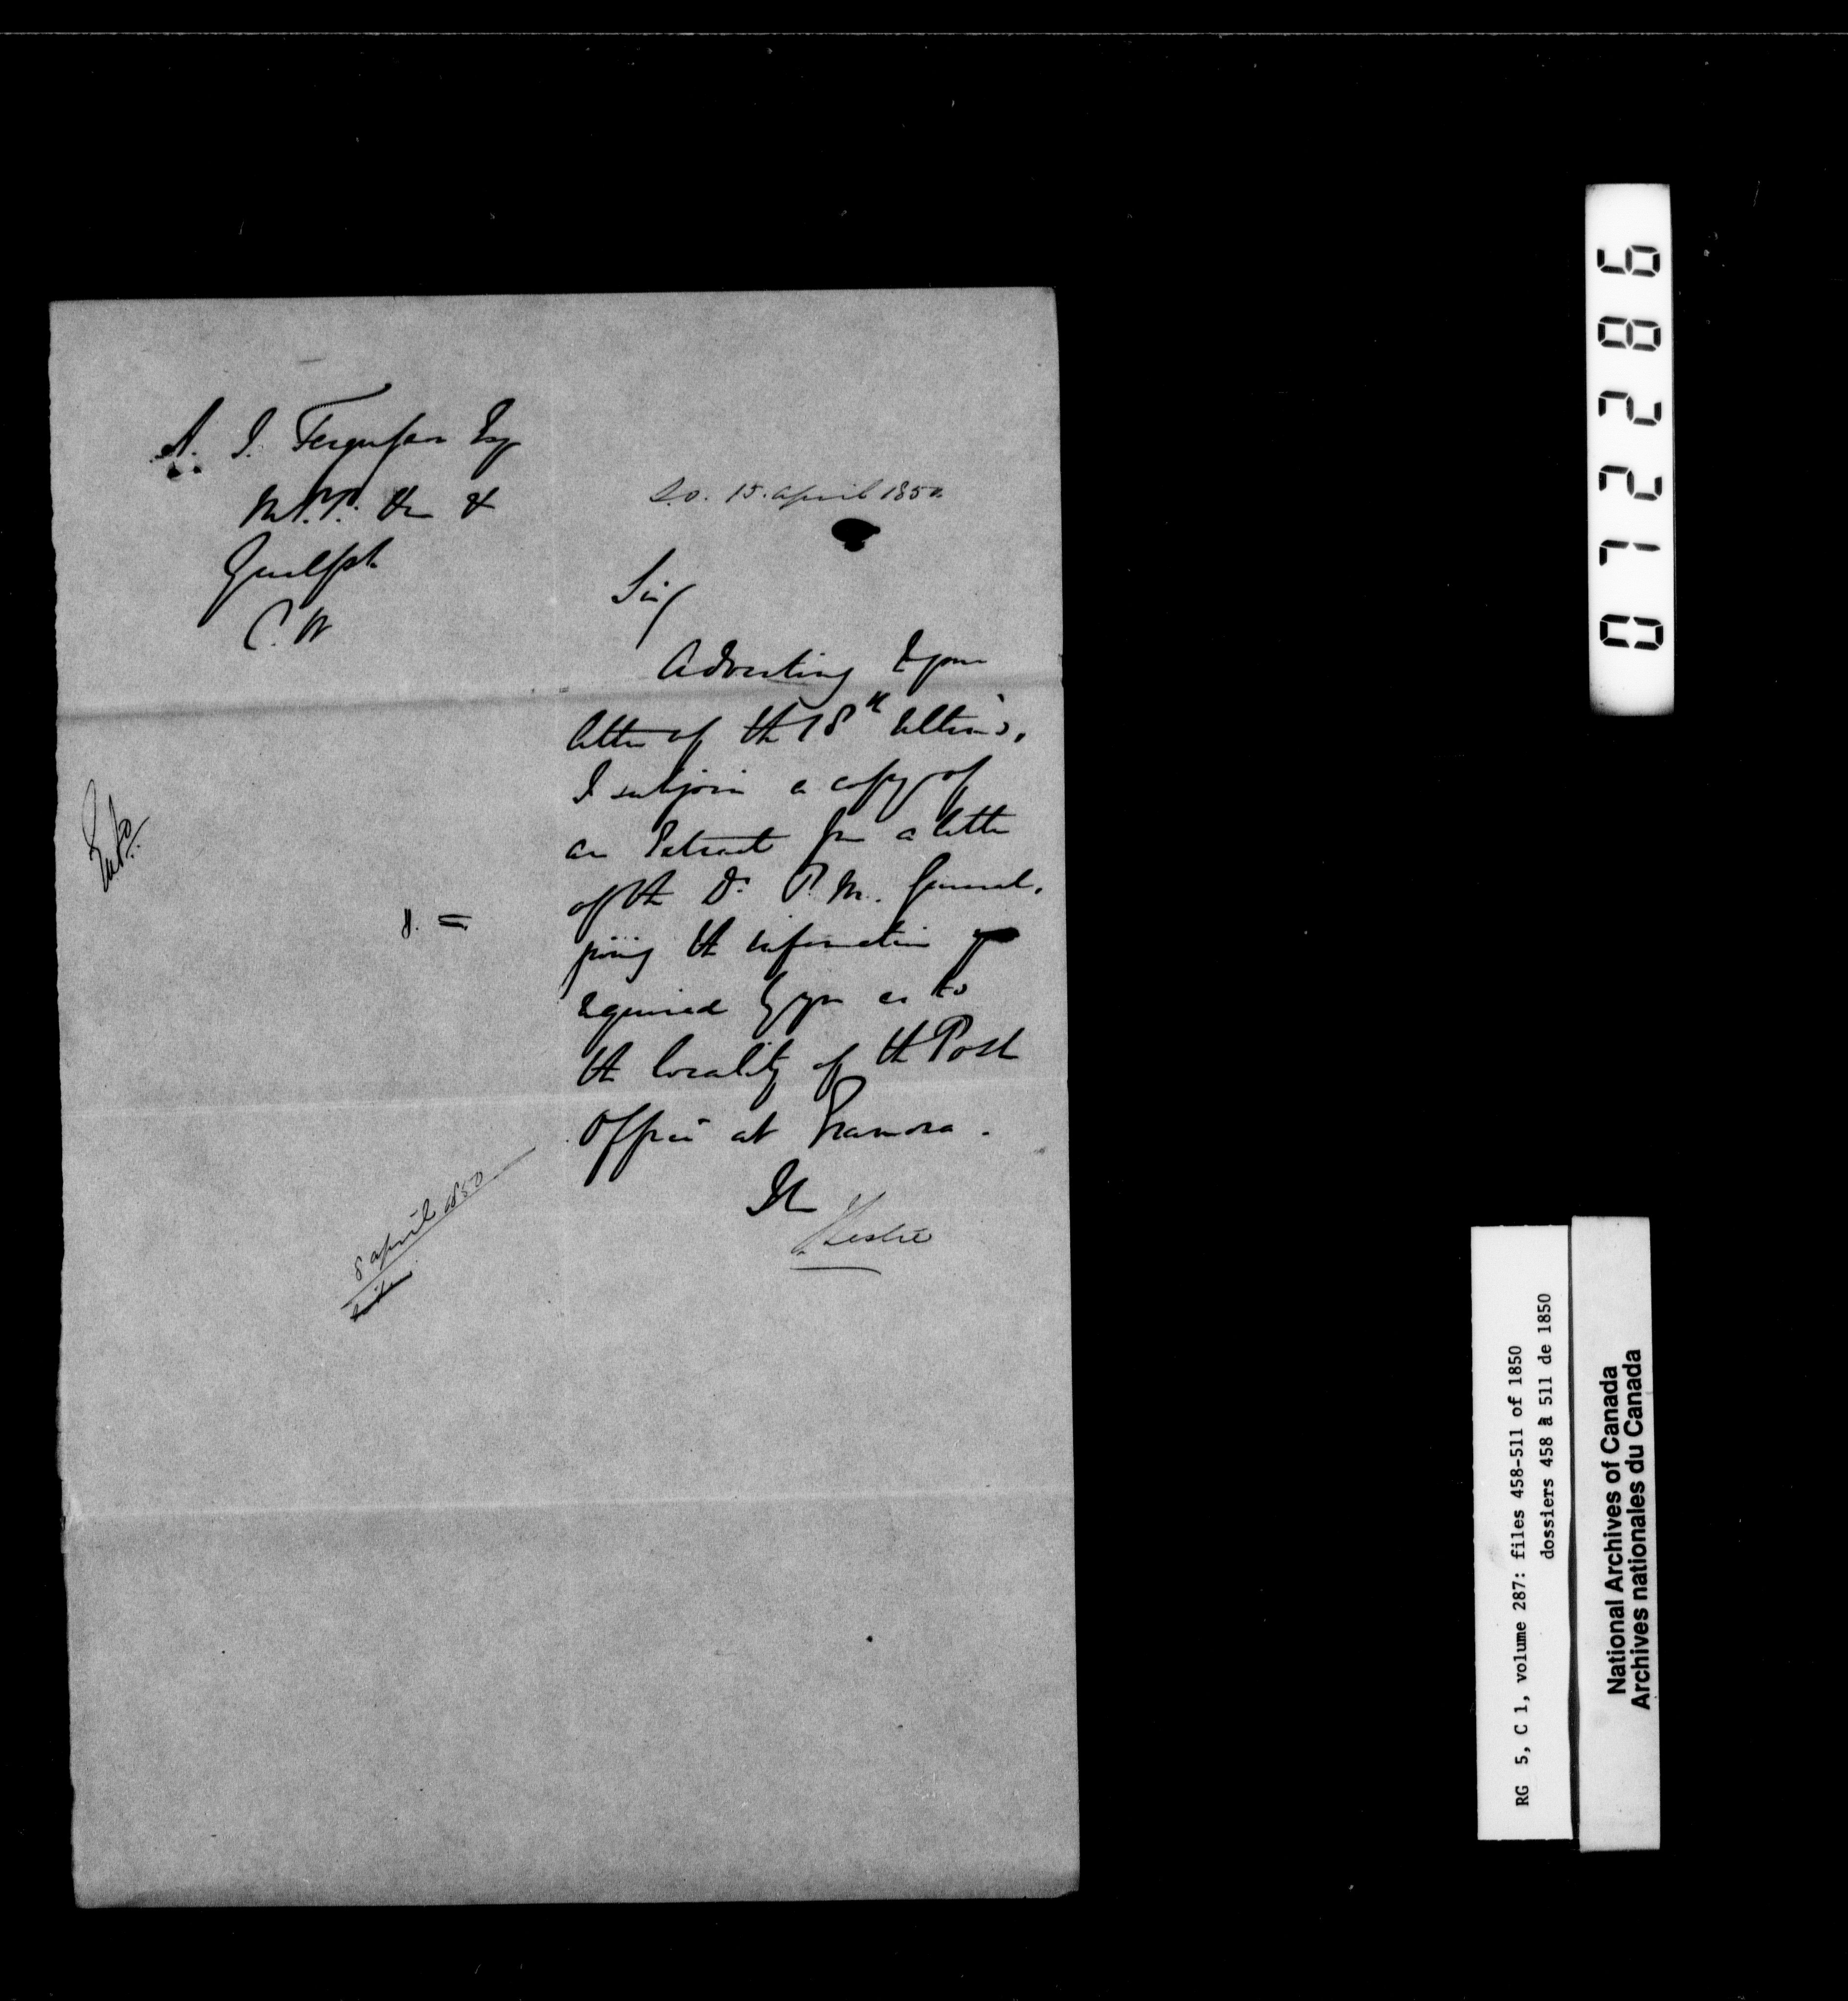 A. J. Fergusson Esq
M.P.P. &c &
Guelph
C. W
S.O. 15. april 1850
Sir/
Adverting to your
letter of the 18th Ultimo,
I subjoin a copy of
an Extract from a letter
of the D. P. M. General,
giving the information
required by you as to
the locality of the Post
Office at Eramosa.
I h
J Leslie
Entd.
8. =
8 april 1850
072286
RG 5, C 1, volume 287: files 458-511 of 1850
dossiers 458 à 511 de 1850
National Archives of Canada
Archives nationales du Canada